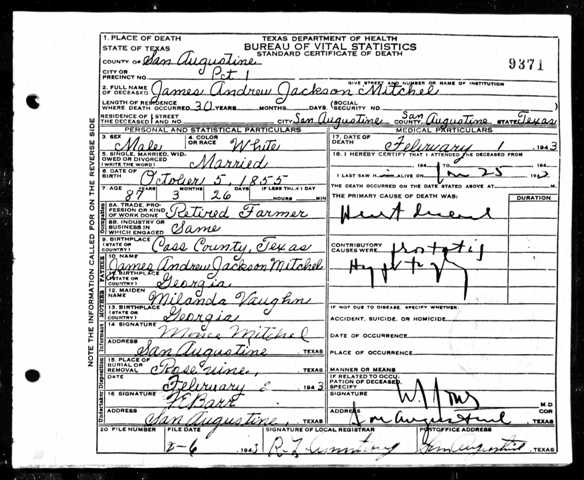 TEXAS DEPARTMENT OF HEALTH
BUREAU OF VITAL STATISTICS
STANDARD CERTIFICATE OF DEATH
9371
1. PLACE OF DEATH
STATE OF TEXAS
COUNTY OF San Augustine
CITY OR PRECINCT NO. Pct 1
GIVE STREET AND NUMBER OR NAME OF INSTITUTION
2. FULL NAME OF DECEASED James Andrew Jackson Mitchel
LENGTH OF RESIDENCE WHERE DEATH OCCURRED 30 YEARS MONTHS DAYS (SOCIAL SECURITY NO.
RESIDENCE OF THE DECEASED STREET AND NO. CITY San Augustine COUNTY San Augustine STATE Texas
PERSONAL AND STATISTICAL PARTICULARS
3. SEX Male
4. COLOR OR RACE White
5. SINGLE, MARRIED, WIDOWED OR DIVORCED (WRITE THE WORD) Married
6. DATE OF BIRTH October 5, 1855
7. AGE YEARS MONTHS DAYS IF LESS THAN 1 DAY
87 3 26 HOURS MIN
8A. TRADE, PROFESSION OR KIND OF WORK DONE Retired Farmer
8B. INDUSTRY OR BUSINESS IN WHICH ENGAGED Same
9. BIRTHPLACE (STATE OR COUNTRY) Cass County, Texas
10. NAME James Andrew Jackson Mitchel
11. BIRTHPLACE (STATE OR COUNTRY) Georgia
12. MAIDEN NAME Milanda Vaughn
13. BIRTHPLACE (STATE OR COUNTRY) Georgia
14. SIGNATURE Mitchel
ADDRESS San Augustine TEXAS
15. PLACE OF BURIAL OR REMOVAL Rosevine, TEXAS
DATE February 1943
16. SIGNATURE Barr
ADDRESS San Augustine TEXAS
MEDICAL PARTICULARS
17. DATE OF DEATH February 1 1943
18. I HEREBY CERTIFY THAT I ATTENDED THE DECEASED FROM
I LAST SAW H ALIVE ON 25
THE DEATH OCCURRED ON THE DATE STATED ABOVE AT M.
THE PRIMARY CAUSE OF DEATH WAS:
DURATION
Heart
CONTRIBUTORY CAUSES WERE
IF NOT DUE TO DISEASE, SPECIFY WHETHER:
ACCIDENT, SUICIDE, OR HOMICIDE
DATE OF OCCURRENCE
PLACE OF OCCURRENCE
MANNER OR MEANS
IF RELATED TO OCCUPATION OF DECEASED, SPECIFY
SIGNATURE M.D.
ADDRESS San Augustine COR TEXAS
20 FILE NUMBER
FILE DATE 2-6 1943
SIGNATURE OF LOCAL REGISTRAR
POSTOFFICE ADDRESS San Augustine TEXAS
NOTE THE INFORMATION CALLED FOR ON THE REVERSE SIDE